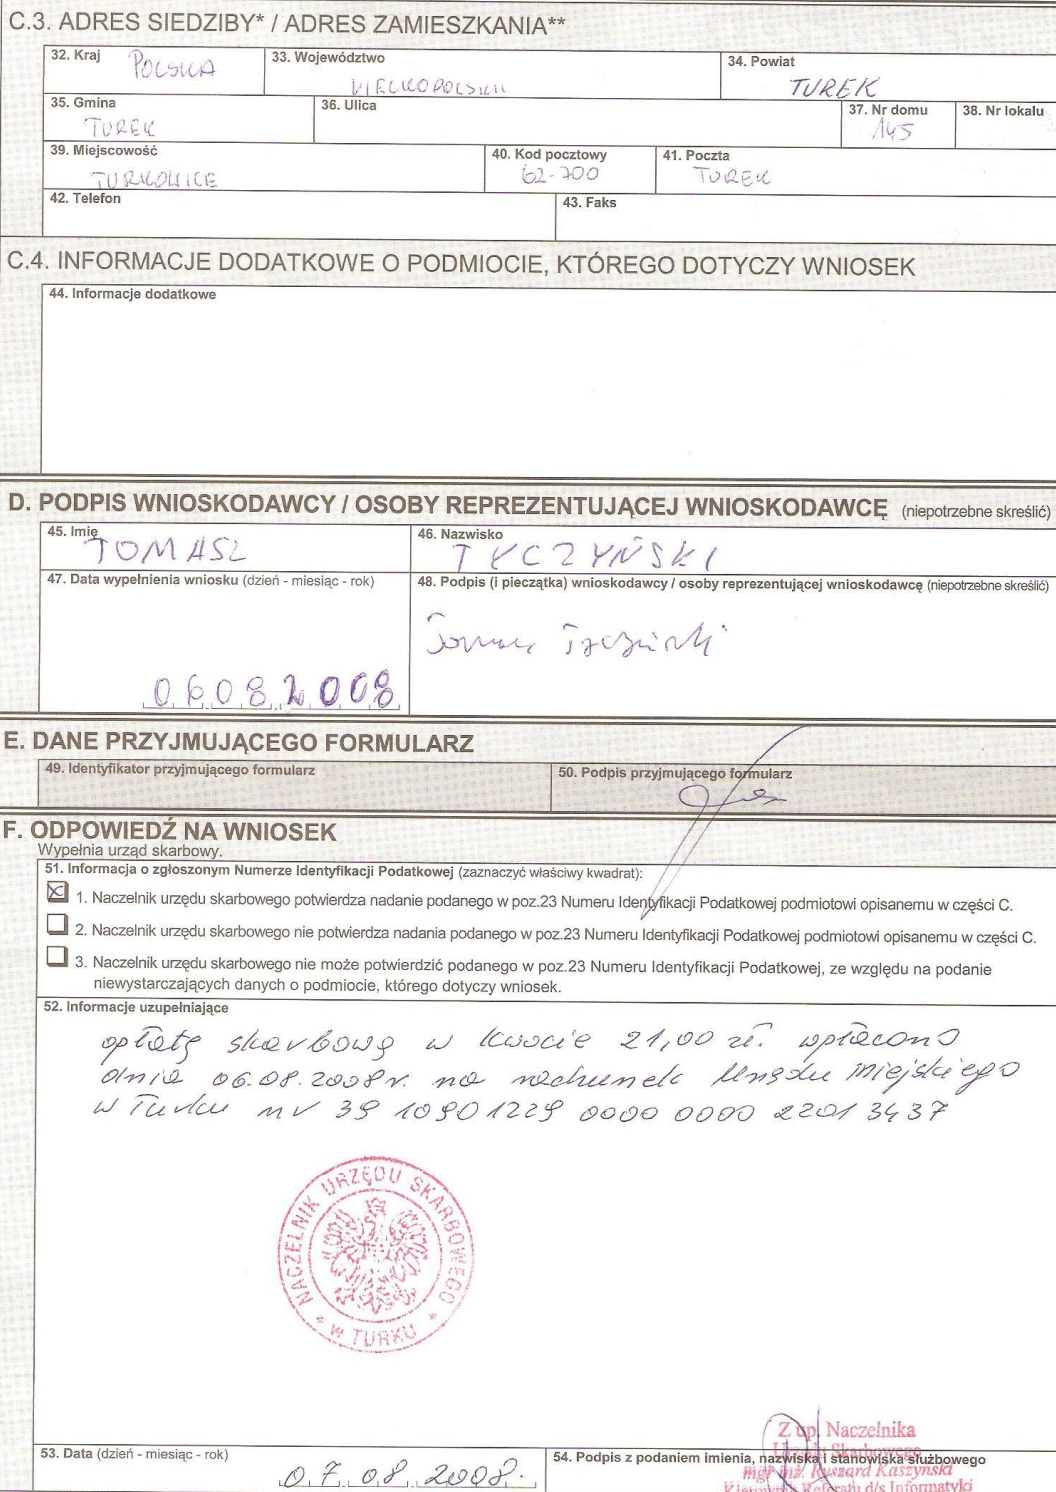 C.3. ADRES SIEDZIBY* / ADRES ZAMIESZKANIA**
32. Kraj POLSKA 33. Województwo WIELKOPOLSKIE 34. Powiat TUREK
35. Gmina TUREK 36. Ulica 37. Nr domu 145 38. Nr lokalu
39. Miejscowość TURKOWICE 40. Kod pocztowy 62-700 41. Poczta TUREK
42. Telefon 43. Faks
C.4. INFORMACJE DODATKOWE O PODMIOCIE, KTÓREGO DOTYCZY WNIOSEK
44. Informacje dodatkowe
D. PODPIS WNIOSKODAWCY / OSOBY REPREZENTUJĄCEJ WNIOSKODAWCĘ (niepotrzebne skreślić)
45. Imię TOMASZ 46. Nazwisko TYCZYŃSKI
47. Data wypełnienia wniosku (dzień - miesiąc - rok) 48. Podpis (i pieczątka) wnioskodawcy / osoby reprezentującej wnioskodawcę (niepotrzebne skreślić)
Tomasz Tyczyński
06.08.2008
E. DANE PRZYJMUJĄCEGO FORMULARZ
49. Identyfikator przyjmującego formularz 50. Podpis przyjmującego formularz
F. ODPOWIEDŹ NA WNIOSEK
Wypełnia urząd skarbowy.
51. Informacja o zgłoszonym Numerze Identyfikacji Podatkowej (zaznaczyć właściwy kwadrat):
1. Naczelnik urzędu skarbowego potwierdza nadanie podanego w poz.23 Numeru Identyfikacji Podatkowej podmiotowi opisanemu w części C.
2. Naczelnik urzędu skarbowego nie potwierdza nadania podanego w poz.23 Numeru Identyfikacji Podatkowej podmiotowi opisanemu w części C.
3. Naczelnik urzędu skarbowego nie może potwierdzić podanego w poz.23 Numeru Identyfikacji Podatkowej, ze względu na podanie
niewystarczających danych o podmiocie, którego dotyczy wniosek.
52. Informacje uzupełniające
opłatę skarbową w kwocie 21,00 zł. wpłacono
dnia 06.08.2008r. na rachunek Urzędu Miejskiego
w Turku nr 39 1090 1229 0000 0000 2201 3437
NACZELNIK URZĘDU SKARBOWEGO
* W TURKU *
Z up. Naczelnika
Urzędu Skarbowego
53. Data (dzień - miesiąc - rok) 07.08.2008. 54. Podpis z podaniem imienia, nazwiska i stanowiska służbowego
mgr inż. Ryszard Kaszyński
Kierownik Referatu d/s Informatyki